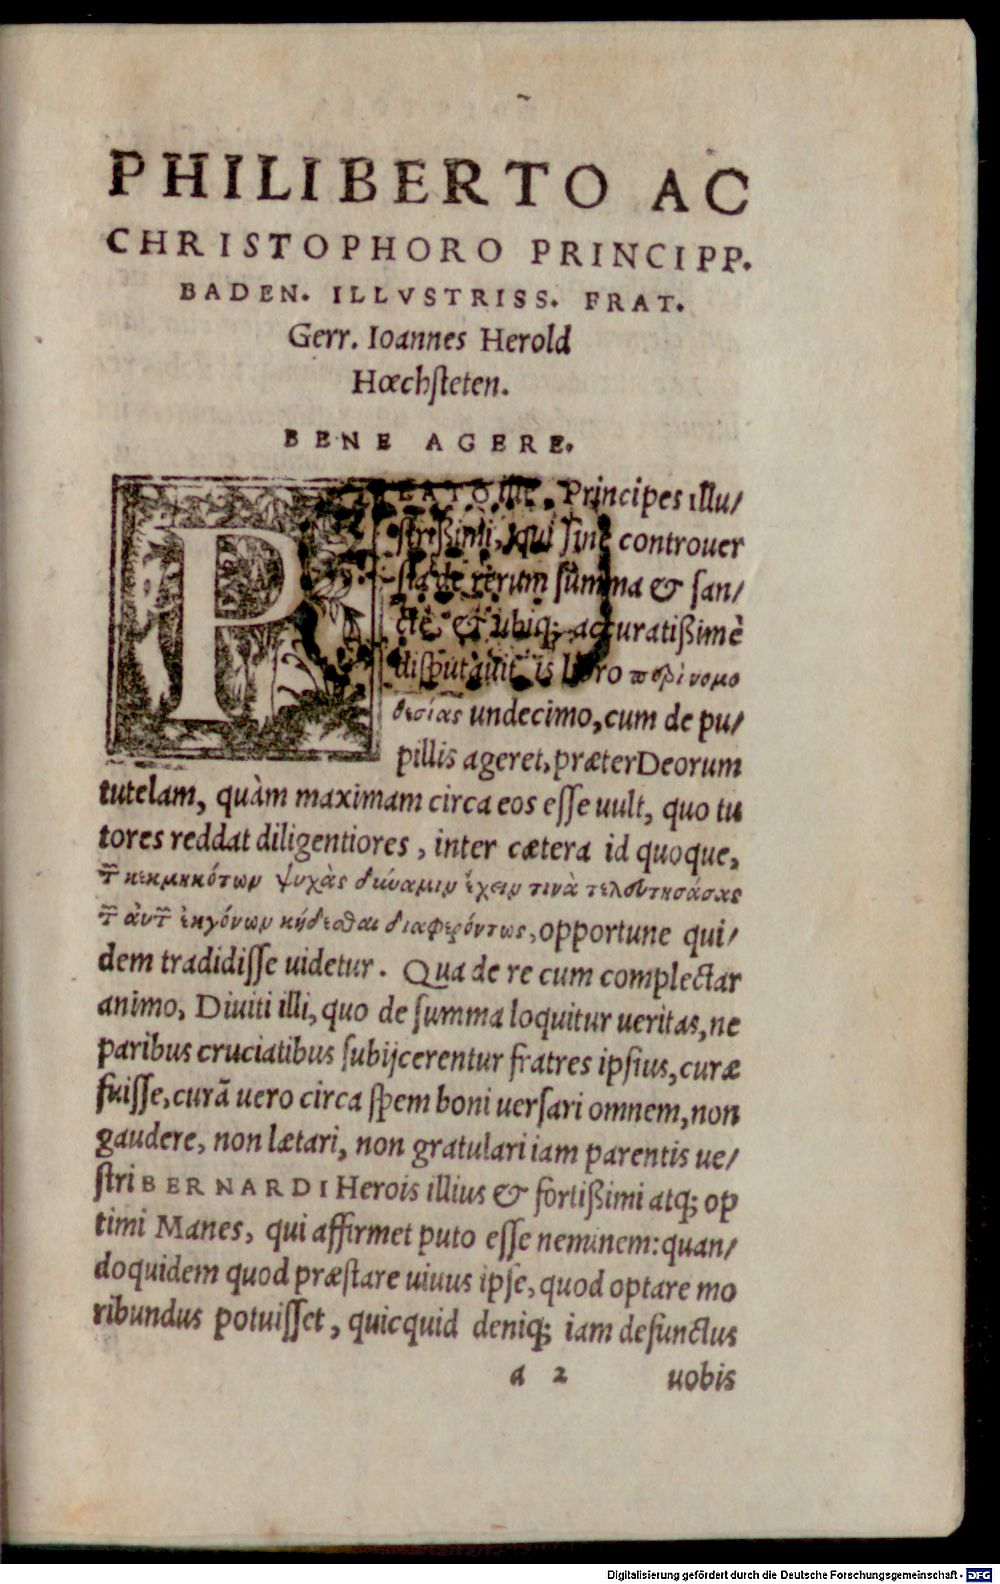 PHILIBERTO AC
CHRISTOPHORO PRINCIPP.
BADEN. ILLVSTRISS. FRAT.
Gerr. Ioannes Herold
Hœchſteten.
BENE AGERE.
PLATO ille, Principes illu/
ſtrißimi, qui ſine controuer
ſia de rerum ſumma & ſan/
ctè, & ubiq; accuratißimè
diſputauit, is libro περὶ νομο
θεσίας undecimo, cum de pu/
pillis ageret, præter Deorum
tutelam, quàm maximam circa eos eſſe uult, quo tu
tores reddat diligentiores, inter cætera id quoque,
τ͂ κεκμηκότων ψυχὰς δύναμιν ἔχειν τινὰ τελουτησάσας
τ͂ ἀυτ͂ ἐκγόνων κήδεσθαι διαφερόντως, opportune qui/
dem tradidiſſe uidetur. Qua de re cum complectar
animo, Diuiti illi, quo de ſumma loquitur ueritas, ne
paribus cruciatibus ſubijcerentur fratres ipſius, curæ
fuiſſe, curā uero circa ſpem boni uerſari omnem, non
gaudere, non lætari, non gratulari iam parentis ue/
ſtri BERNARDI Herois illius & fortißimi atq; op
timi Manes, qui affirmet puto eſſe neminem: quan/
doquidem quod præſtare uiuus ipſe, quod optare mo
ribundus potuiſſet, quicquid deniq; iam defunctus
a 2 uobis
Digitalisierung gefördert durch die Deutsche Forschungsgemeinschaft - DFG